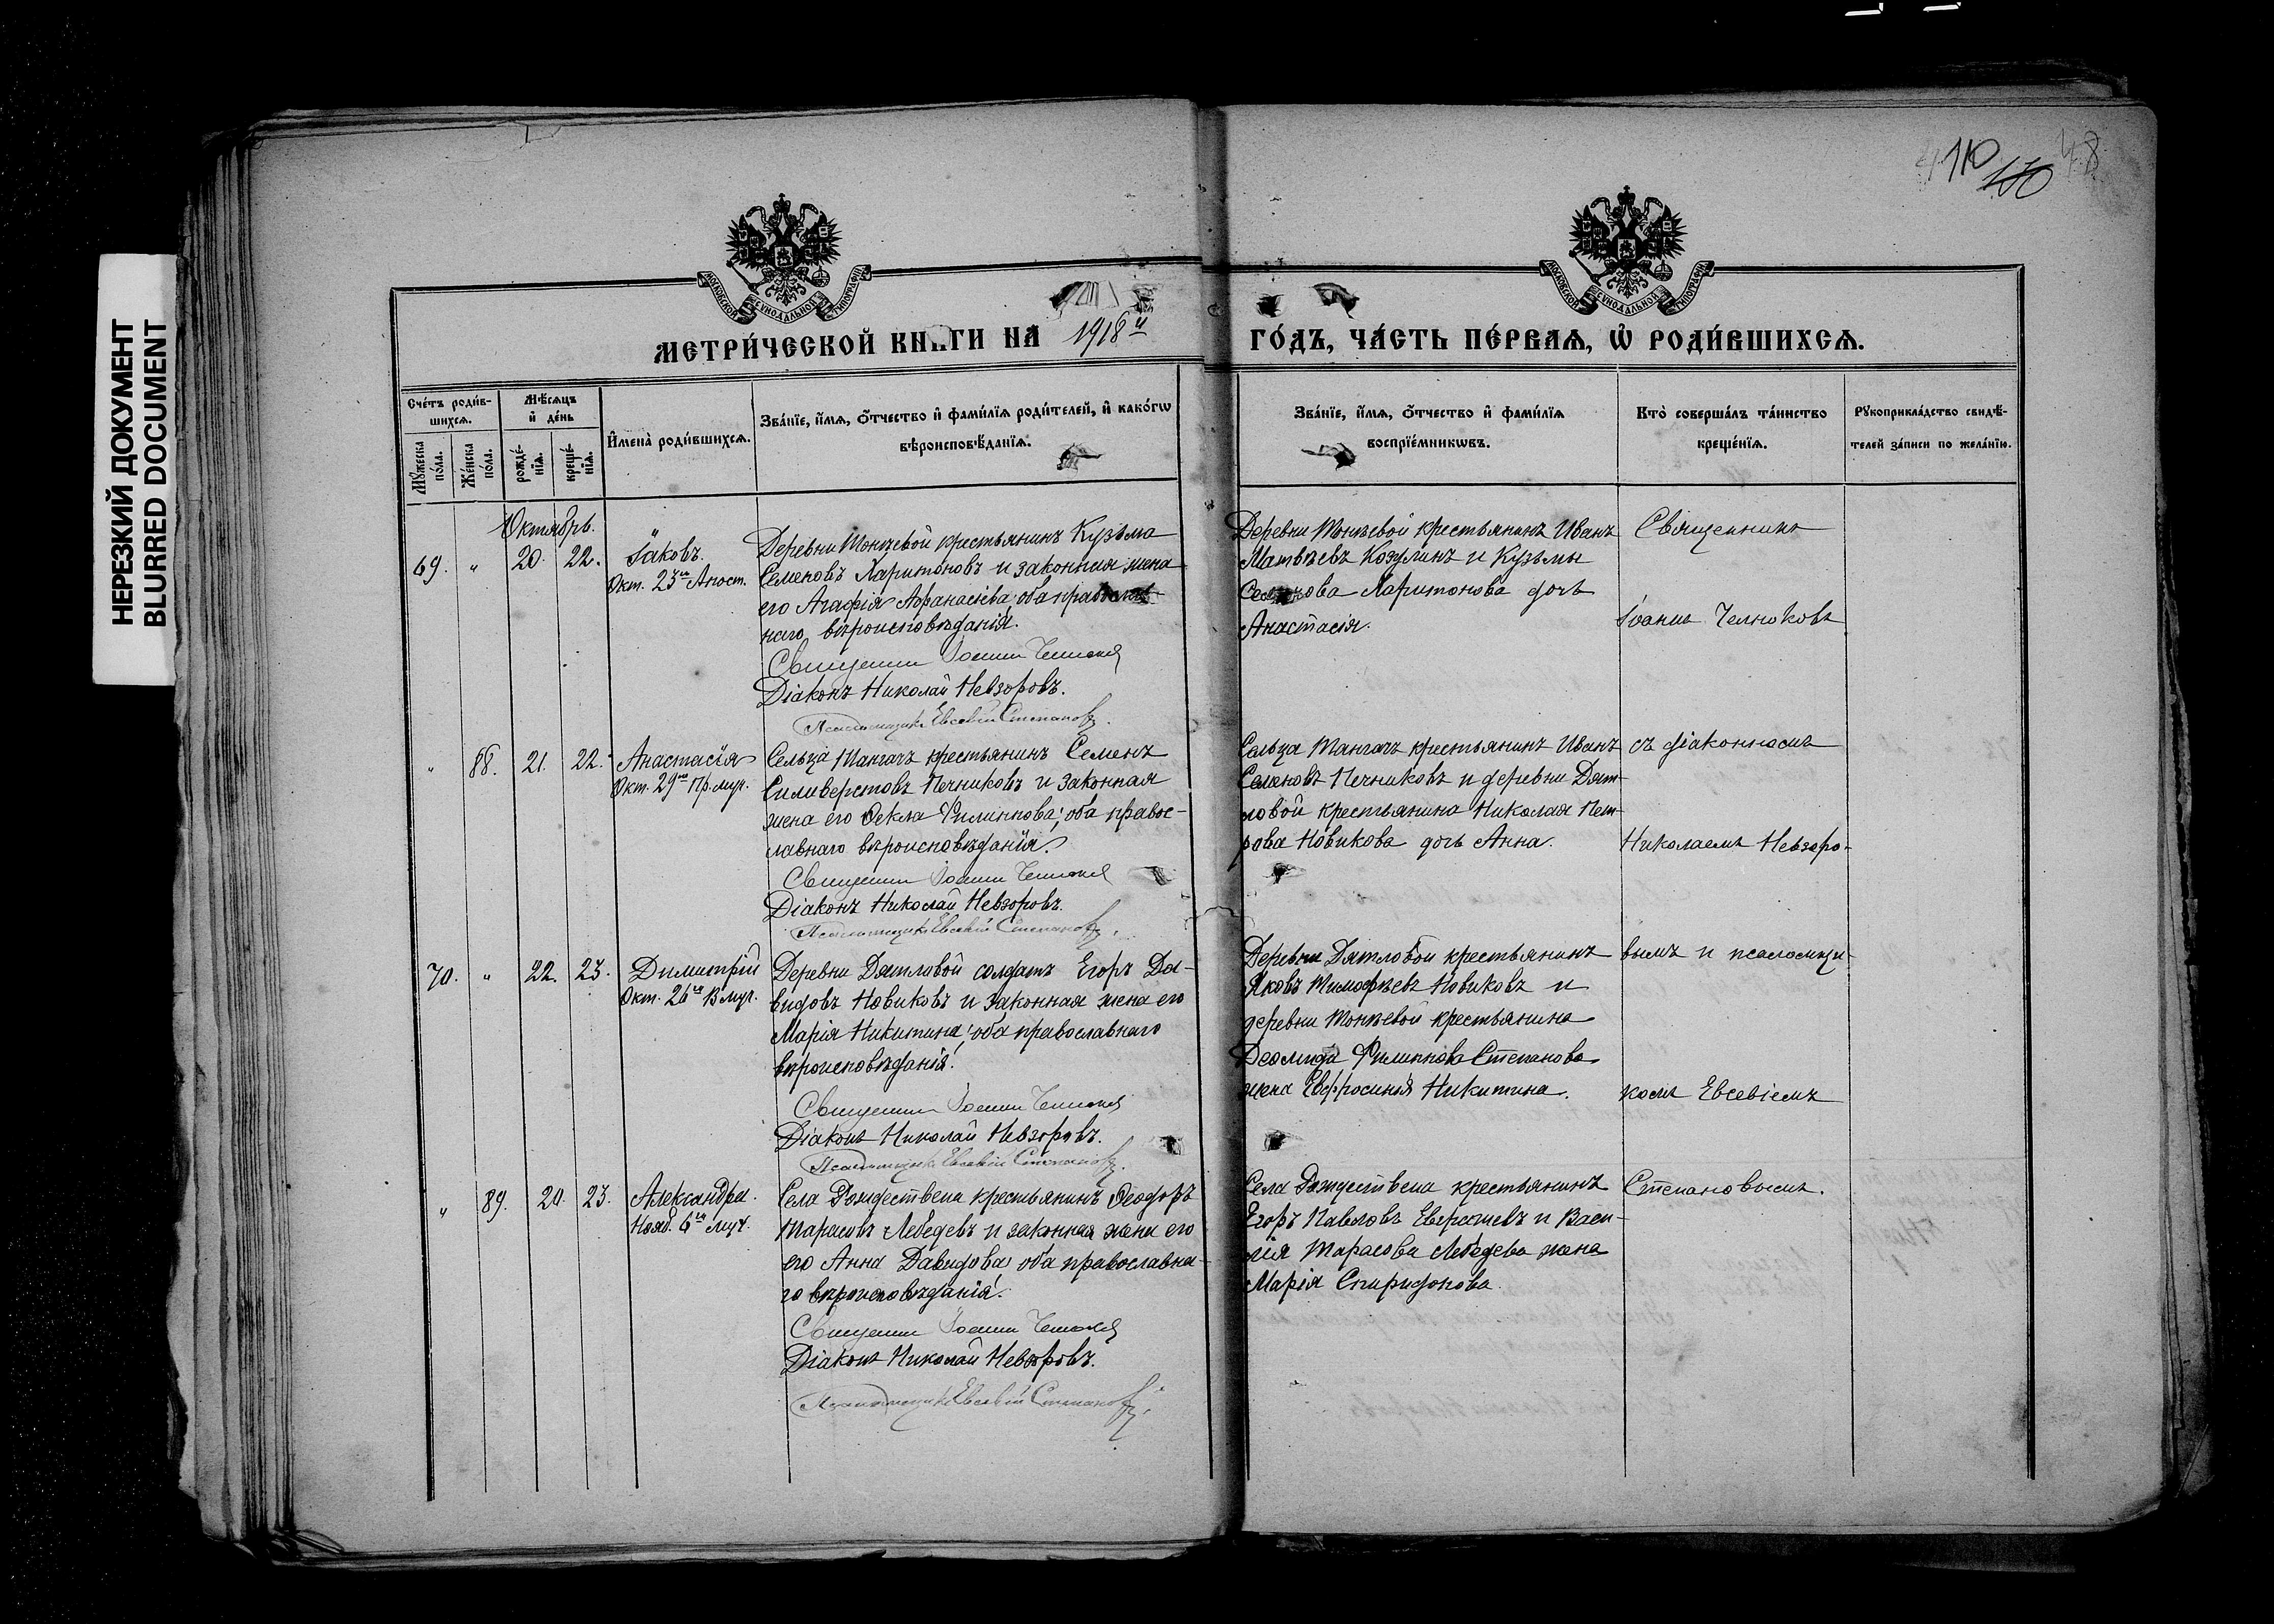 НЕРЕЗКИЙ ДОКУМЕНТ
BLURRED DOCUMENT
110
48
МОСКОВСКОЙ СѴНОДАЛЬНОЙ ТИПОГРАФІИ
МОСКОВСКОЙ СѴНОДАЛЬНОЙ ТИПОГРАФІИ
МЕТРИ́ЧЕСКОЙ КНИГИ НА 1918й
ГО́ДЪ, ЧА́СТЬ ПЕ́РВАѦ, Ѡ҆ РОДИ́ВШИХСѦ.
Сче́тъ роди́в-
шихсѧ.
Мꙋ́жеска по́ла.
Же́нска по́ла.
Мѣ́сѧцъ
и҆ де́нь
рожде́-
нїѧ.
креще́-
нїѧ.
И҆мена̀ роди́вшихсѧ.
Зва́нїе, и҆́мѧ, ѻ҆́тчество и҆ фами́лїѧ роди́телей, и҆ како́гѡ
вѣроисповѣ́данїѧ.
Зва́нїе, и҆́мѧ, ѻ҆́тчество и҆ фами́лїѧ
воспрїе́мникѡвъ.
Кто̀ соверша́лъ та́инство
креще́нїѧ.
Рꙋкоприкла́дство свидѣ́-
телей за́писи по жела́нїю.
Октябрь.
69. " 20. 22. Іаковъ.
Окт. 23го Апост.
Деревни Тонѣевой крестьянинъ Кузьма
Семеновъ Харитоновъ и законная жена
его Агафія Афанасіева; оба православ-
наго вѣроисповѣданія.
Священник Іоанн Челноков
Діаконъ Николай Невзоровъ.
Псаломщикъ Евсевій Степановъ.
Деревни Тонѣевой крестьянинъ Иванъ
Матвѣевъ Козулинъ и Кузьмы
Семенова Харитонова дочь
Анастасія.
Священникъ
Іоаннъ Челноковъ
" 88. 21. 22. Анастасія
Окт. 29го Пр. муч.
Сельца Мангачъ крестьянинъ Семенъ
Силиверстовъ Печниковъ и законная
жена его Ѳекла Филиппова; оба правос-
лавнаго вѣроисповѣданія.
Священник Іоанн Челноков
Діаконъ Николай Невзоровъ.
Псаломщикъ Евсевій Степановъ.
Сельца Мангачъ крестьянинъ Иванъ
Семеновъ Печниковъ и деревни Дят-
ловой крестьянина Николая Пет-
рова Новикова дочь Анна.
съ діакономъ
Николаемъ Невзоро-
70. " 22. 23. Димитрій
Окт. 26го В муч.
Деревни Дятловой солдатъ Егоръ Да-
видовъ Новиковъ и законная жена его
Марія Никитина; оба православнаго
вѣроисповѣданія.
Священник Іоанн Челноков
Діаконъ Николай Невзоровъ.
Псаломщикъ Евсевій Степановъ.
Деревни Дятловой крестьянинъ
Яковъ Тимофѣевъ Новиковъ и
деревни Тонѣевой крестьянина
Деомида Филиппова Степанова
жена Евфросинія Никитина.
вымъ и псаломщи-
комъ Евсевіемъ
" 89. 20. 23. Александра.
Нояб. 6го муч.
Села Рождествена крестьянинъ Ѳеодоръ
Тарасовъ Лебедевъ и законная жена его
его Анна Давидова; оба православна-
го вѣроисповѣданія.
Священник Іоанн Челноков
Діаконъ Николай Невзоровъ.
Псаломщикъ Евсевій Степановъ.
Села Рождествена крестьянинъ
Егоръ Павловъ и Васи-
лія Тарасова Лебедева жена
Марія Спиридонова.
Степановымъ.